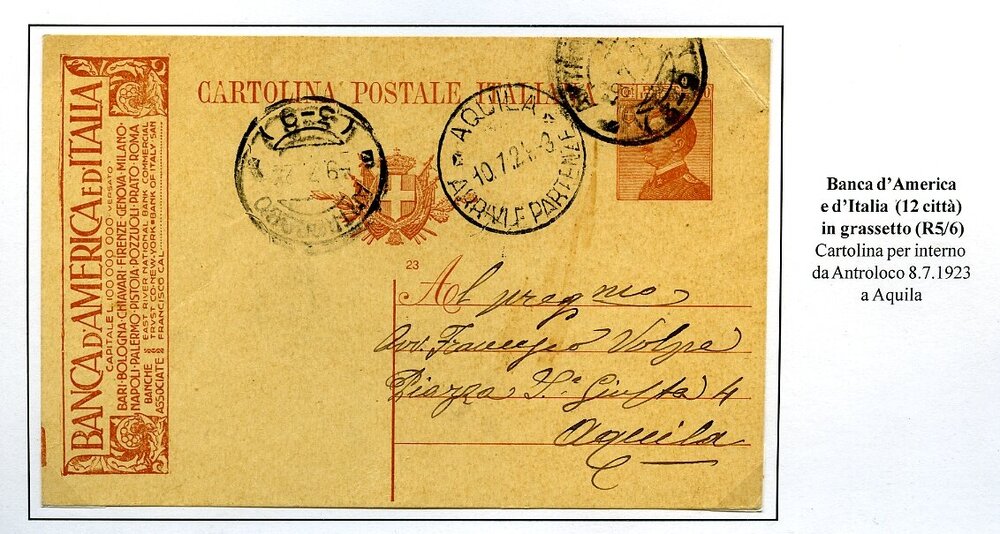 BANCA D'AMERICA E D'ITALIA
CAPITALE L. 100 000 000 VERSATO
BARI·BOLOGNA·CHIAVARI·FIRENZE·GENOVA·MILANO·
NAPOLI·PALERMO·PISTOIA·POZZUOLI·PRATO·ROMA
BANCHE ASSOCIATE
EAST RIVER NATIONAL BANK COMMERCIAL
TRVST CO·NEW·YORK·BANK OF ITALY·SAN
FRANCISCO CAL.
CARTOLINA POSTALE ITALIANA
(5-6)
AQUILA
10.7.2
ARRIVI E PARTENZE
23
Al pregmo
Avv. Francesco Volpe
Piazza Sa Giusta 4
Aquila
Banca d'America
e d'Italia (12 città)
in grassetto (R5/6)
Cartolina per interno
da Antroloco 8.7.1923
a Aquila